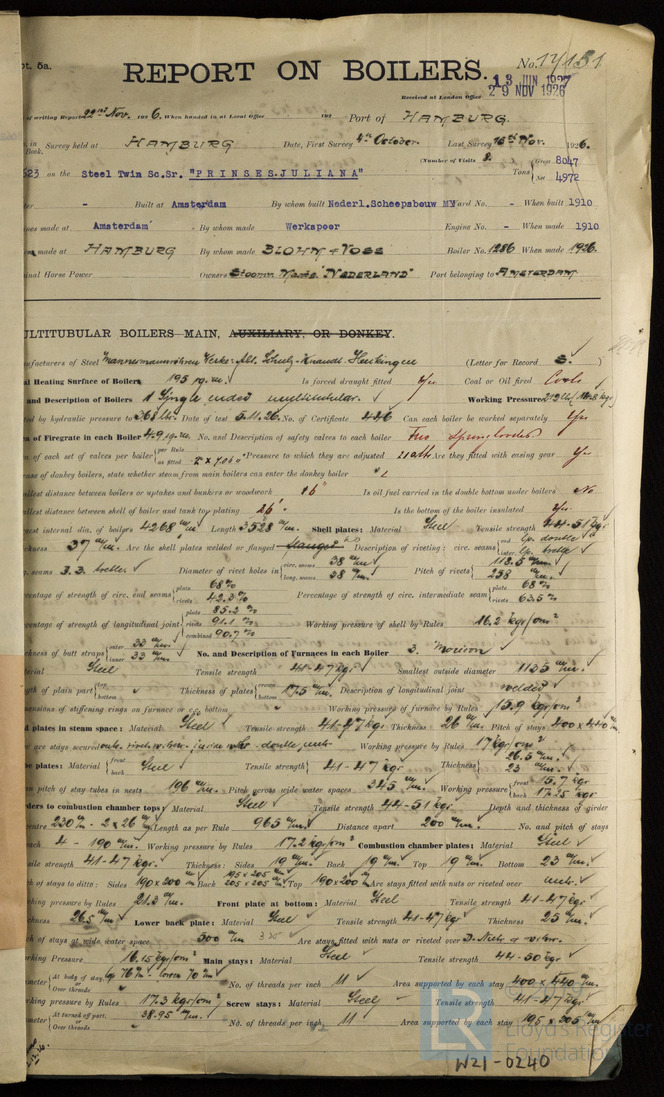 pt. 5a.
REPORT ON BOILERS.
No. 17151
13 JUN 1927
Received at London Office 29 NOV 1926
of writing Report 22nd Nov. 1926. When handed in at Local Office 192 Port of HAMBURG.
in Book. Survey held at HAMBURG Date, First Survey 4th October. Last Survey 16th Nov. 1926.
(Number of Visits 8. ) Gross 8047
Tons
Net 4972
523 on the Steel Twin Sc.Sr. "PRINSES JULIANA"
- Built at Amsterdam By whom built Nederl.Scheepsbouw MY Yard No. - When built 1910
ines made at Amsterdam - By whom made Werkspoor Engine No. - When made 1910
made at HAMBURG By whom made BLOHM & VOSS Boiler No. 1286 When made 1926.
inal Horse Power Owners Stoomv. Maats. "NEDERLAND" Port belonging to AMSTERDAM
ULTITUBULAR BOILERS MAIN, AUXILIARY, OR DONKEY.
nufacturers of Steel Mannesmannröhren Werke: Abt. Schulz-Knaudt. Huckingen (Letter for Record S. )
al Heating Surface of Boilers 195 sq.m. Is forced draught fitted Yes Coal or Oil fired Coals
and Description of Boilers 1 Single ended multitubular. Working Pressure 212 lbs
ed by hydraulic pressure to 363 lbs. Date of test 5.11.26. No. of Certificate 446 Can each boiler be worked separately Yes
of Firegrate in each Boiler 4.9 sq.m. No. and Description of safety valves to each boiler Two spring loaded
of each set of valves per boiler per Rule as fitted Pressure to which they are adjusted 21 ath Are they fitted with easing gear Yes
case of donkey boilers, state whether steam from main boilers can enter the donkey boiler
llest distance between boilers or uptakes and bunkers or woodwork 16" Is oil fuel carried in the double bottom under boilers No
llest distance between shell of boiler and tank top plating 26" Is the bottom of the boiler insulated Yes
est internal dia. of boilers 4268 m/m Length 3528 m/m. Shell plates: Material Steel Tensile strength 44-51 kgs
ckness 37 m/m. Are the shell plates welded or flanged flanged Description of riveting: circ. seams end lap double inter. lap treble
g. seams Diameter of rivet holes in circ. seams 38 m/m long. seams 38 m/m. Pitch of rivets 118.5 m/m 258 m/m.
centage of strength of circ. end seams plate 68% rivets 42.3% Percentage of strength of circ. intermediate seam plate 68% rivets 63.5%
centage of strength of longitudinal joint plate 85.2% rivets 91.1% combined 90.7% Working pressure of shell by Rules 16.2 kgr/cm²
ckness of butt straps outer 33 m/m. inner 33 m/m. No. and Description of Furnaces in each Boiler 3. Morison
erial Steel Tensile strength 41-47 kgs Smallest outside diameter 1125 m/m.
gth of plain part top bottom Thickness of plates crown bottom 17.5 m/m. Description of longitudinal joint welded
mensions of stiffening rings on furnace or c.c. bottom Working pressure of furnace by Rules 15.9 kgr/cm²
d plates in steam space: Material Steel Tensile strength 41-47 kgs Thickness 26 m/m. Pitch of stays 400 x 440 m/m
w are stays secured Working pressure by Rules 17 kgr/cm²
be plates: Material front back Steel Tensile strength 41-47 kgr Thickness 26.5 m/m. 23 m/m.
n pitch of stay tubes in nests 196 m/m. Pitch across wide water spaces 345 m/m. Working pressure front 15.7 kgr back 17.25 kgr
ders to combustion chamber tops: Material Steel Tensile strength 44-51 kgr Depth and thickness of girder
centre 230 m - 2 x 26 m/m Length as per Rule 965 m/m. Distance apart 200 m/m. No. and pitch of stays
each 4 - 190 m/m. Working pressure by Rules 17.2 kgr/cm² Combustion chamber plates: Material Steel
sile strength 41-47 kgr. Thickness: Sides 19 m/m. Back 19 m/m. Top 19 m/m. Bottom 23 m/m.
ch of stays to ditto: Sides 190 x 200 m Back 195 x 205 m/m 205 x 205 m/m Top 190 x 200 m Are stays fitted with nuts or riveted over nuts.
rking pressure by Rules 21.3 kgr. Front plate at bottom: Material Steel Tensile strength 41-47 kgr
ckness 26.5 m/m. Lower back plate: Material Steel Tensile strength 41-47 kgr Thickness 25 m/m.
h of stays at wide water space 500 m/m Are stays fitted with nuts or riveted over
rking Pressure 16.15 kgr/cm² Main stays: Material Steel Tensile strength 44-50 kgr
meter At body of stay, or Over threads 76 m - 70 m No. of threads per inch 11 Area supported by each stay 400 x 440 m/m.
rking pressure by Rules 17.3 kgr/cm² Screw stays: Material Steel Tensile strength 41-47 kgr
meter At turned off part, or Over threads 38.95 m/m. No. of threads per inch 11 Area supported by each stay 195 x 205 m/m
LR Lloyd's Register Foundation
W21-0240